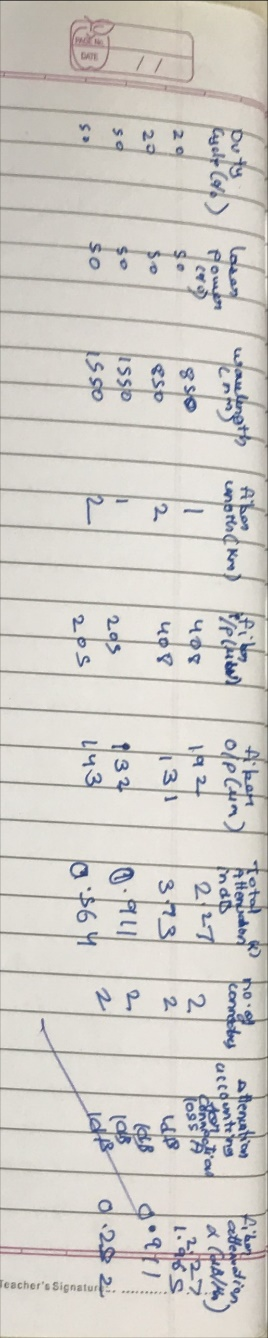 PAGE No.
DATE / /
Duty Cycle (%) Laser Power (%) wavelength (nm) fiber length (km) fiber I/p (μw) fiber O/p (μm) Total attenuation in dB (x) no. of connectors attenuation accounting for connection loss A fiber attenuation α (dB/km)
20 50 850 1 408 192 2.27 2 2.27
20 50 850 2 408 131 3.73 2 1dB 1.965
50 50 1550 1 205 132 0.911 2 1dB 0.911
50 50 1550 2 205 143 0.564 2 1dB 0.282
Teacher's Signature